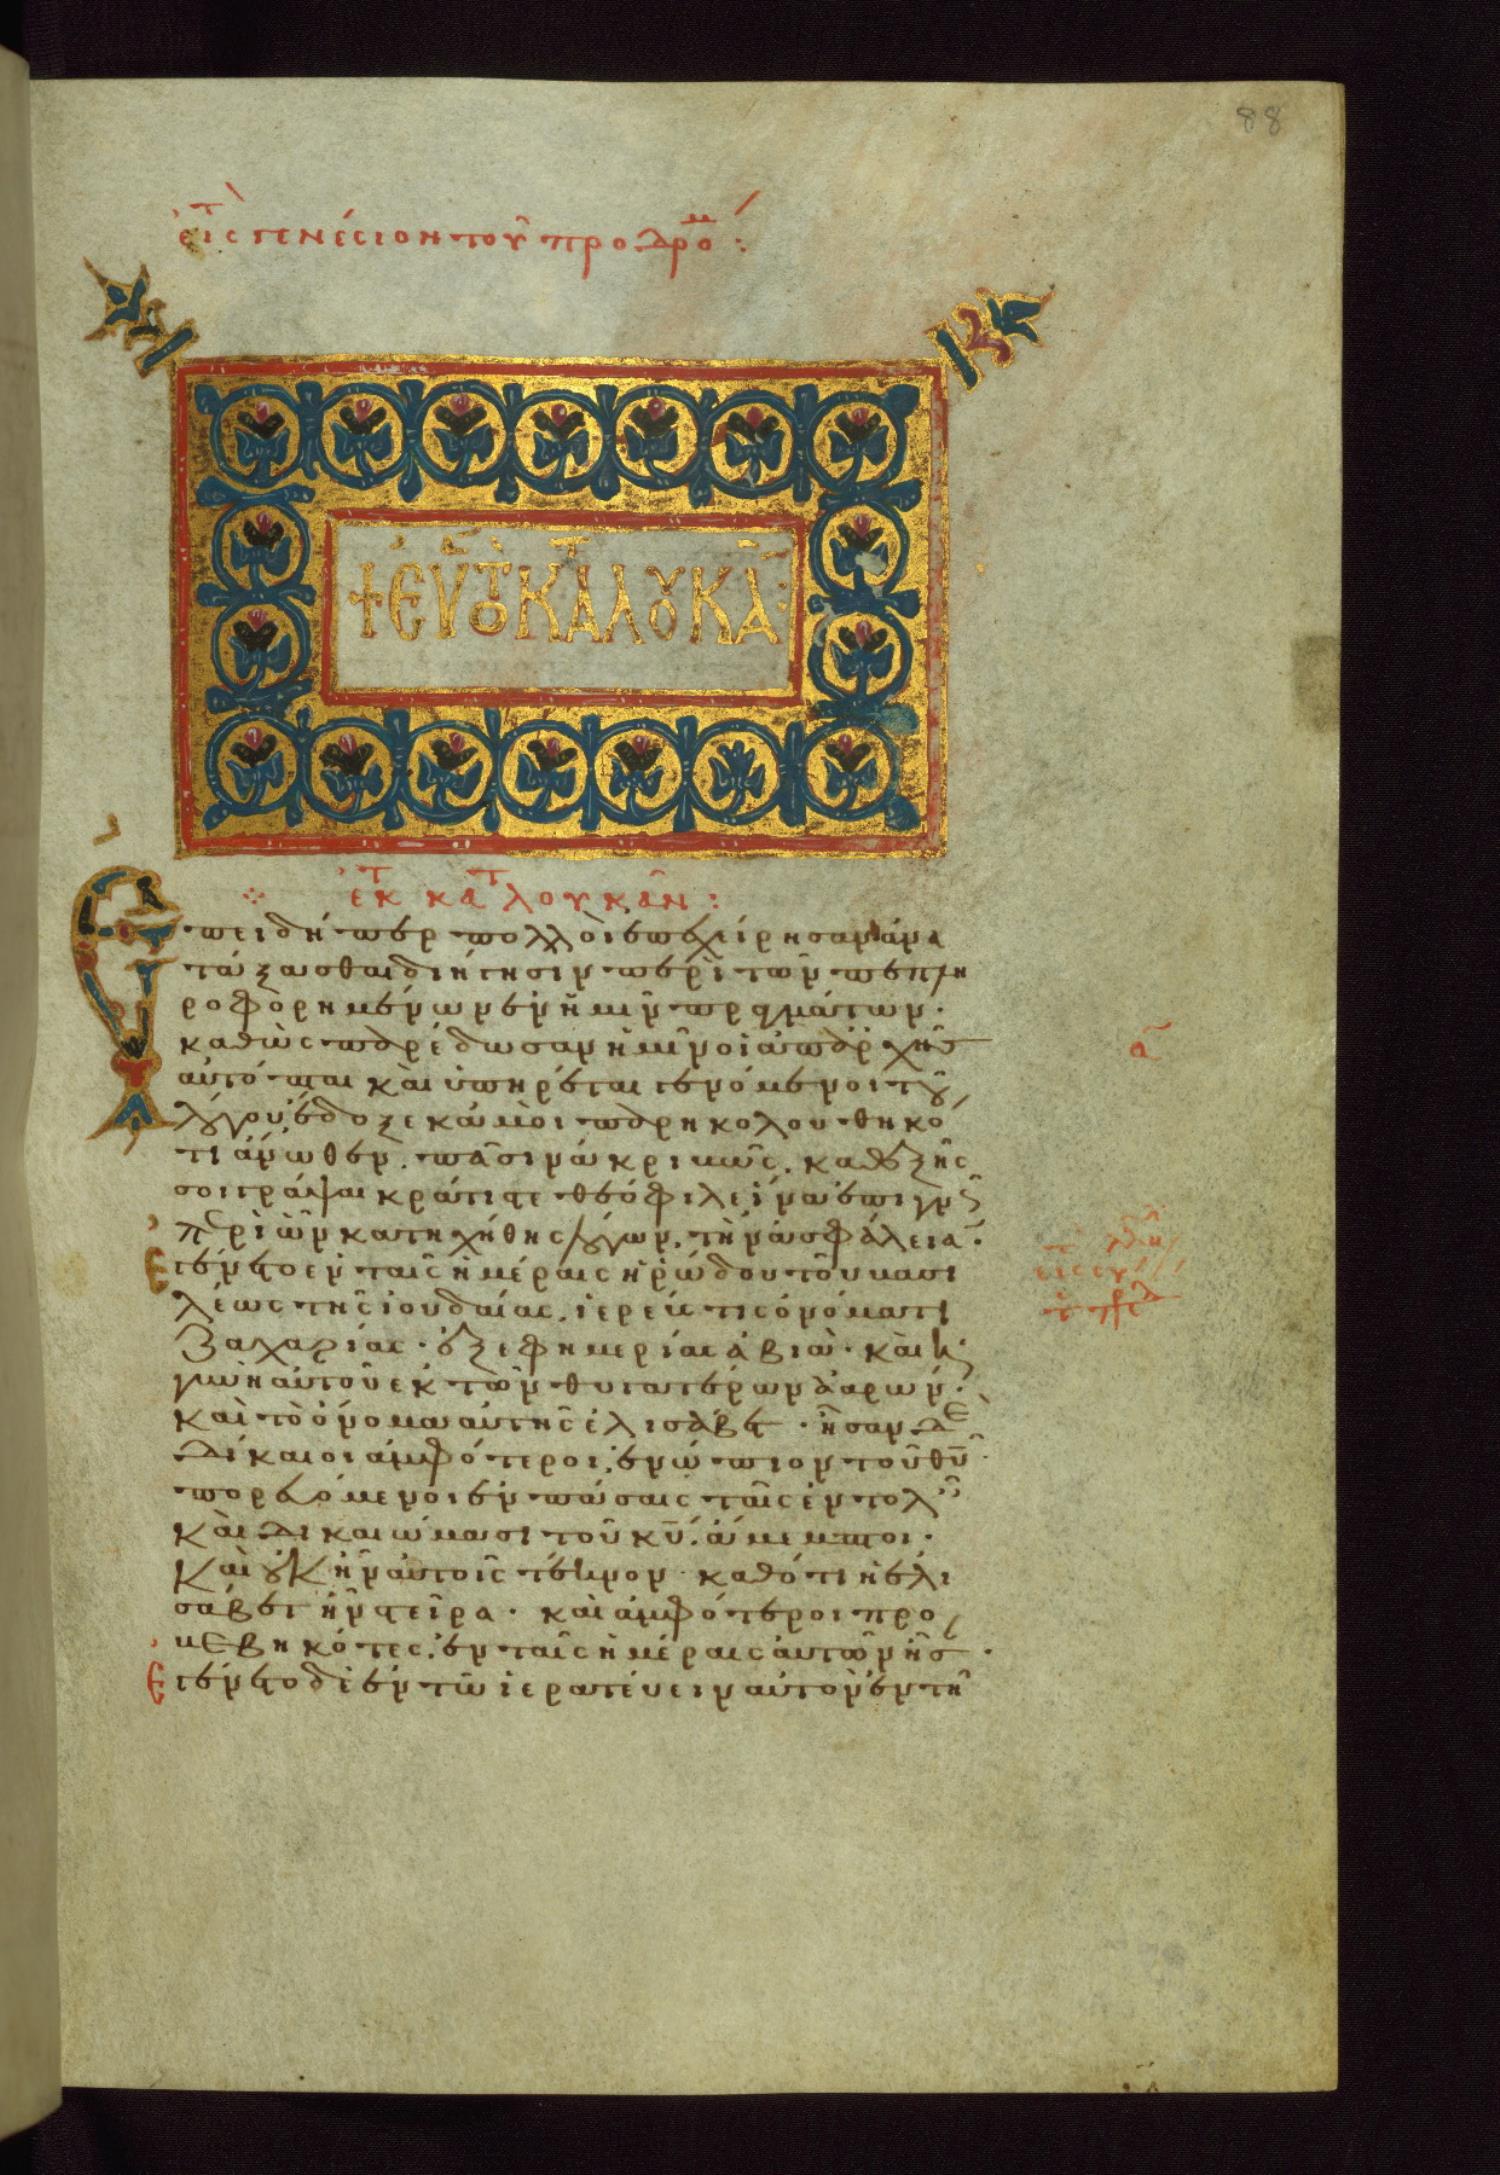 88
εἰς τ γενέσιον τοῦ προδρομ:
+ ΕΥ ΤΟΥ ΚΑΤ ΛΟΥΚΑ:
ἐκ τ κατ λουκᾶν:
Ἐπειδήπερ πολλοὶ ἐπεχείρησαν ἀνα
τάξασθαι διήγησιν περὶ τῶν πεπλη
ροφορημένων ἐν ἡμῖν πραγμάτων.
καθὼς παρέδωσαν ἡμῖν οἱ ἀπαρχῆς
αὐτόπται καὶ ὑπηρέται γενόμενοι τοῦ
λόγου, ἔδοξε κἀμοὶ παρηκολουθηκό
τι ἄνωθεν. πᾶσιν ἀκριβῶς. καθεξῆς
σοι γράψαι κράτιστε θεόφιλε ἵνα ἐπιγνῷς
περὶ ὧν κατηχήθης λόγων. τὴν ἀσφάλειαν.
Ἐγένετο ἐν ταῖς ἡμέραις ἡρώδου τοῦ βασι
λέως τῆς ἰουδαίας, ἱερεύς τις ὀνόματι
Ζαχαρίας. ἐξ ἐφημερίας ἀβιά. καὶ ἡ
γυνὴ αὐτοῦ ἐκ τῶν θυγατέρων ἀαρών.
καὶ τὸ ὄνομα αὐτῆς ἐλισάβετ. ἦσαν δὲ
δίκαιοι ἀμφότεροι, ἐνώπιον τοῦ θῦ
πορευόμενοι ἐν πάσαις ταῖς ἐντολαῖς
καὶ δικαιώμασι τοῦ κῦ, ἄμεμπτοι.
Καὶ οὐκ ἦν αὐτοῖς τέκνον. καθότι ἡ ἐλι
σάβετ ἦν στεῖρα. καὶ ἀμφότεροι προ
βεβηκότες, ἐν ταῖς ἡμέραις αὐτῶν ἦσ
Ἐγένετο δὲ ἐν τῶ ἱερατεύειν αὐτὸν ἐν τῆ
α